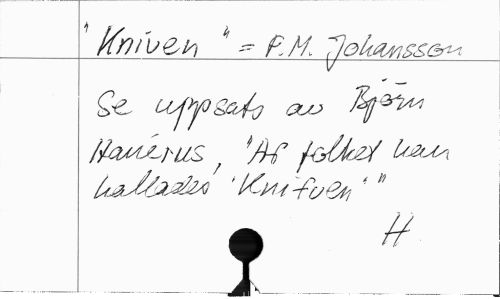 "Kniven" = F.M. Johansson
Se uppsats av Björn
Hanérus, "Af folket han
kallades 'Knifven'"
H